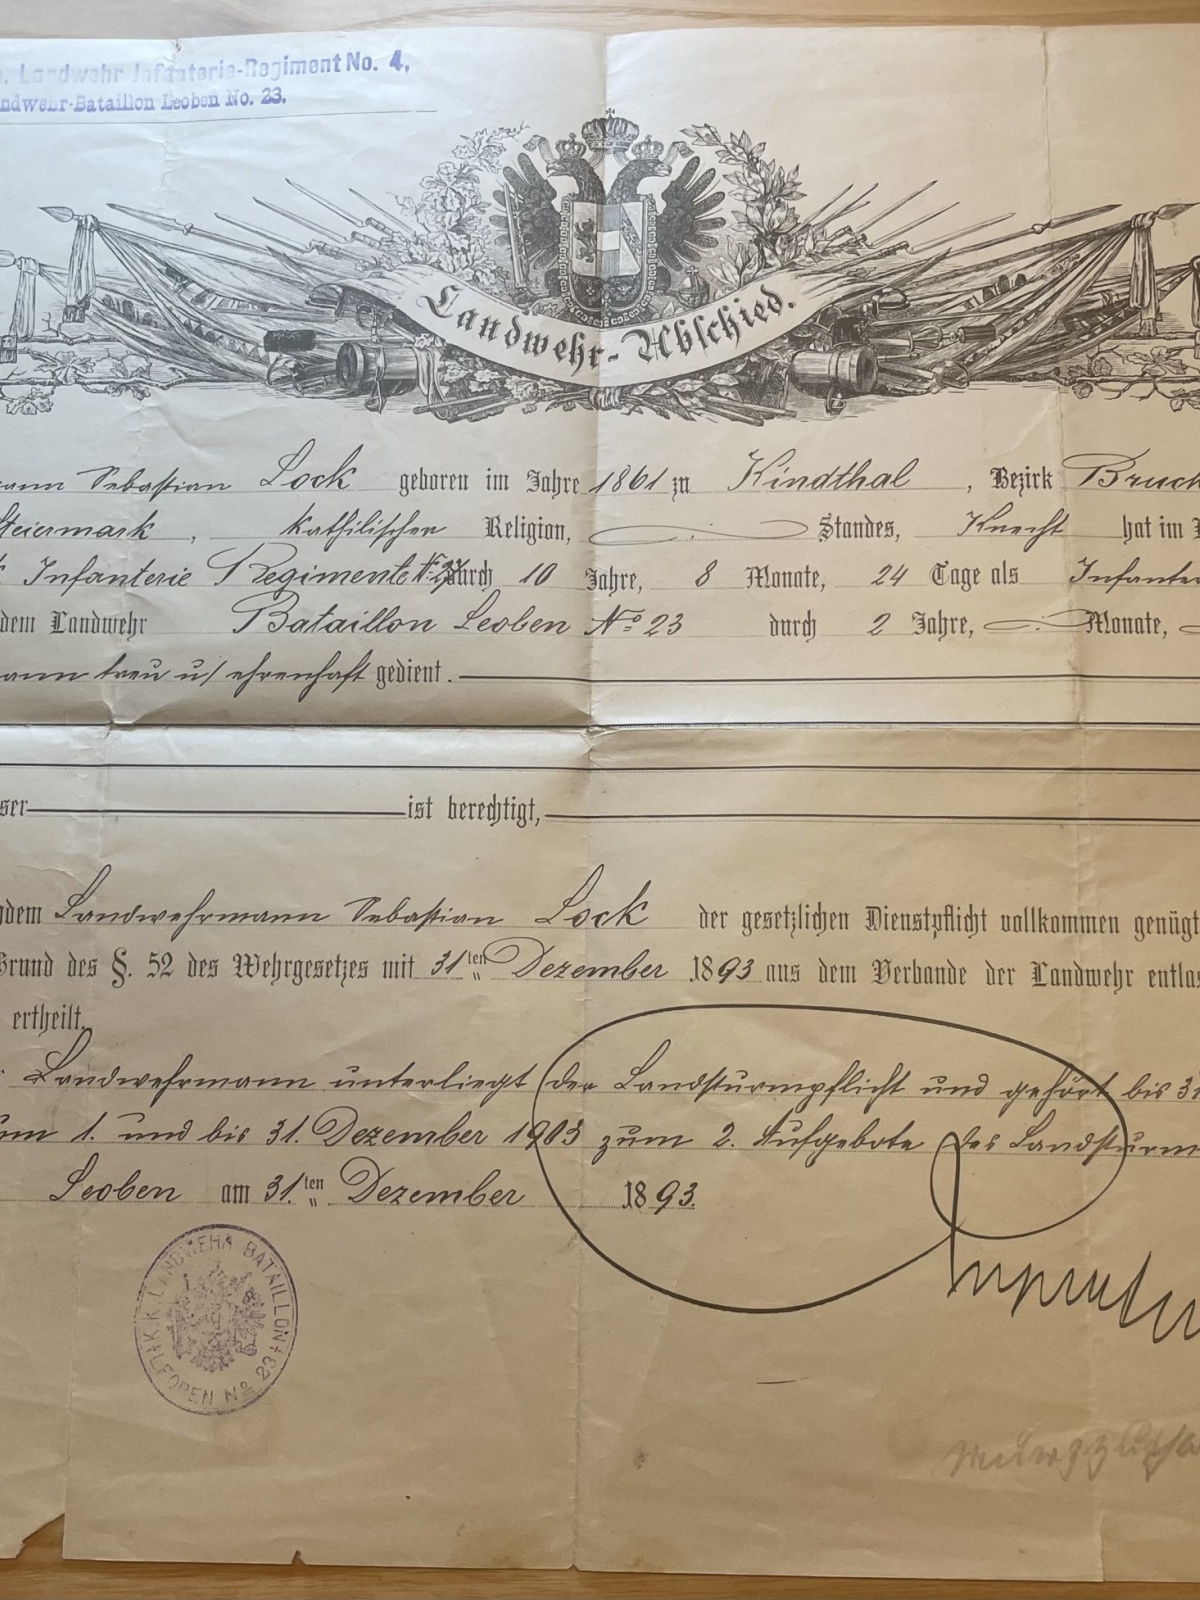 Landwehr Infanterie-Regiment No. 4,
ndwehr-Bataillon Leoben No. 23.
Landwehr-Abschied.
ann Sebastian Lock geboren im Jahre 1861 zu Kindthal, Bezirk Bruck
Steiermark, kathilischer Religion, Standes, Knecht hat im
Infanterie Regimente durch 10 Jahre, 8 Monate, 24 Tage als Infanter
dem Landwehr Bataillon Leoben No 23 durch 2 Jahre, Monate,
ann treu u/ ehrenhaft gedient.
ser ist berechtigt,
hdem Landwehrmann Sebastian Lock der gesetzlichen Dienstpflicht vollkommen genügt
Grund des §. 52 des Wehrgesetzes mit 31ten Dezember 1893 aus dem Verbande der Landwehr entlas
ertheilt.
Landwehrmann unterliegt der Landsturmpflicht und gehört bis 31
um 1. und bis 31. Dezember 1903 zum 2. Aufgebote des Landsturm
Leoben am 31.ten Dezember 1893.
K.K. LANDWEHR BATAILLON LEOBEN No 23